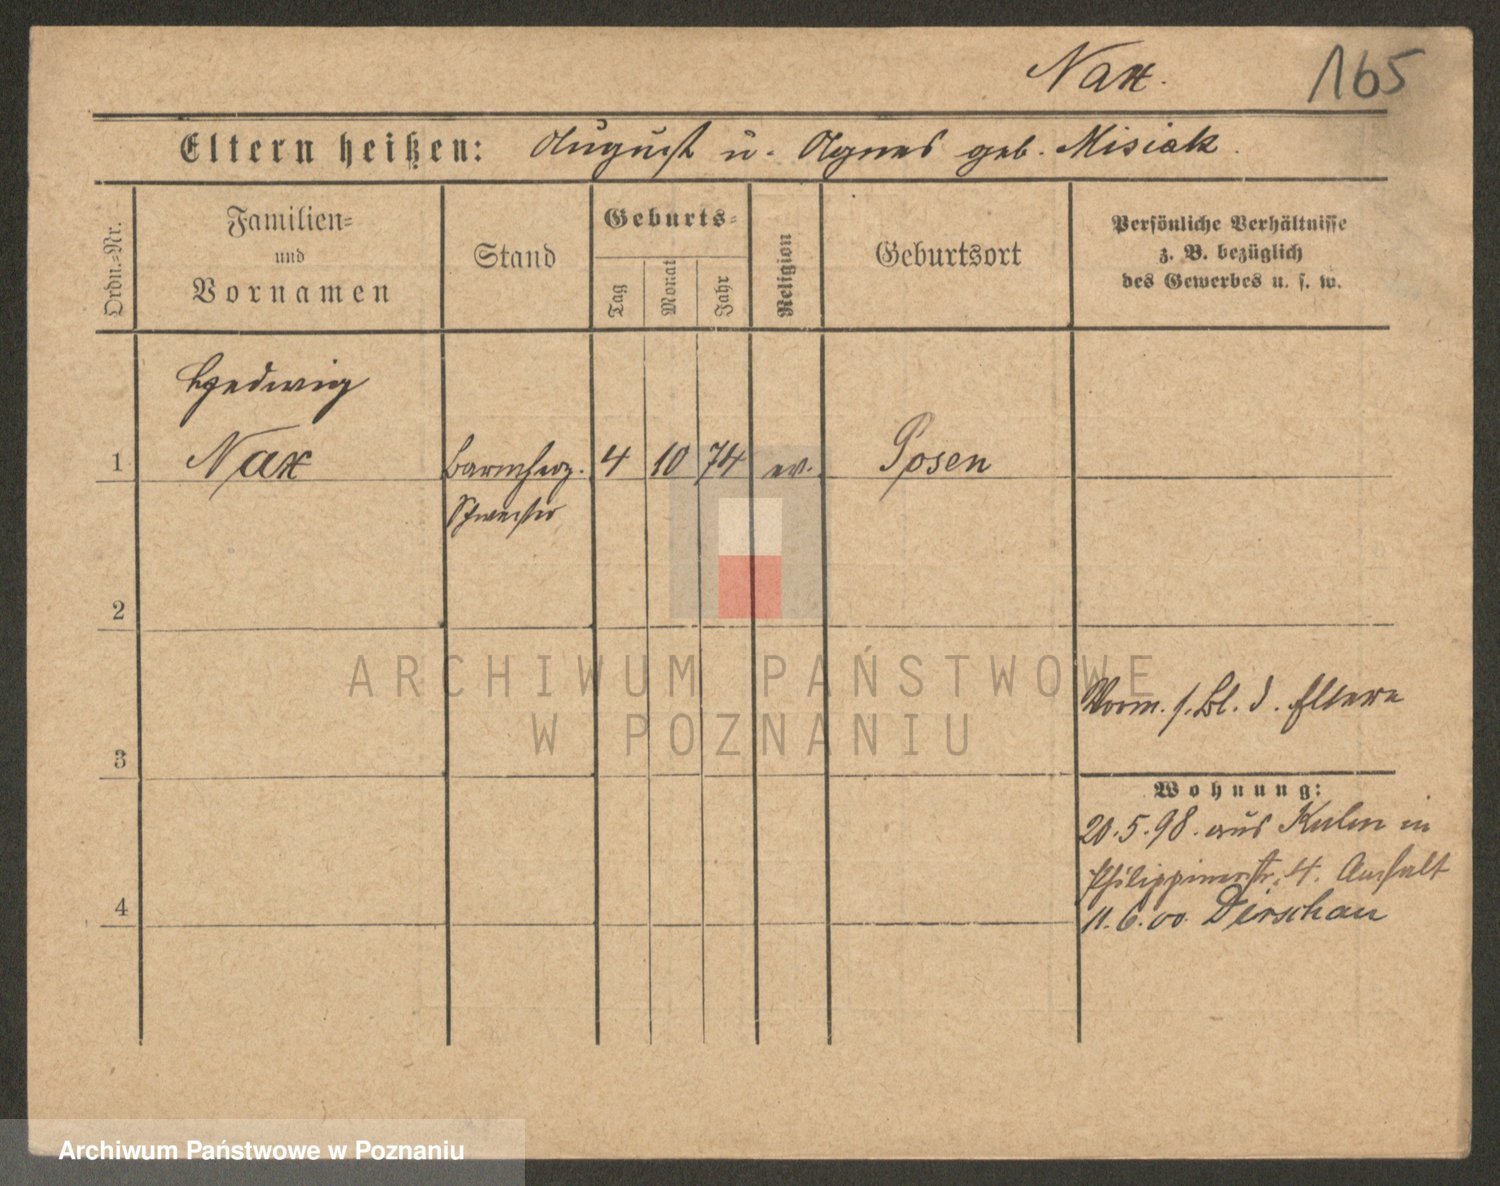 Nax.
165
Eltern heißen: August u. Agnes geb. Misiak.
Ordn.=Nr.
Familien=
und
Vornamen
Stand
Geburts=
Tag
Monat
Jahr
Religion
Geburtsort
Persönliche Verhältnisse
z. B. bezüglich
des Gewerbes u. s. w.
Hedwig
1 Nax barmherz. 4 10 74 ev. Posen
Schwester
2
ARCHIWUM PAŃSTWOWE
W POZNANIU
Vorm. s. Bl. d. Eltern
3
Wohnung:
20.5.98. aus Kulm in
Philippinenstr. 4. Anstalt
4
11.6.00. Dirschau
Archiwum Państwowe w Poznaniu